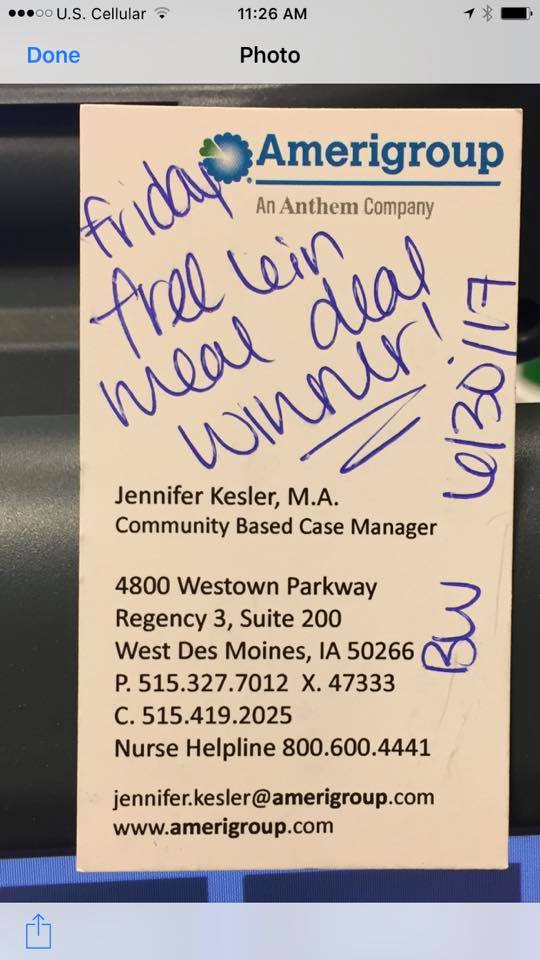 U.S. Cellular 11:26 AM
Done Photo
Amerigroup
An Anthem Company
friday
free
meal deal
winner!
6/30/17
BW
Jennifer Kesler, M.A.
Community Based Case Manager
4800 Westown Parkway
Regency 3, Suite 200
West Des Moines, IA 50266
P. 515.327.7012 X. 47333
C. 515.419.2025
Nurse Helpline 800.600.4441
jennifer.kesler@amerigroup.com
www.amerigroup.com